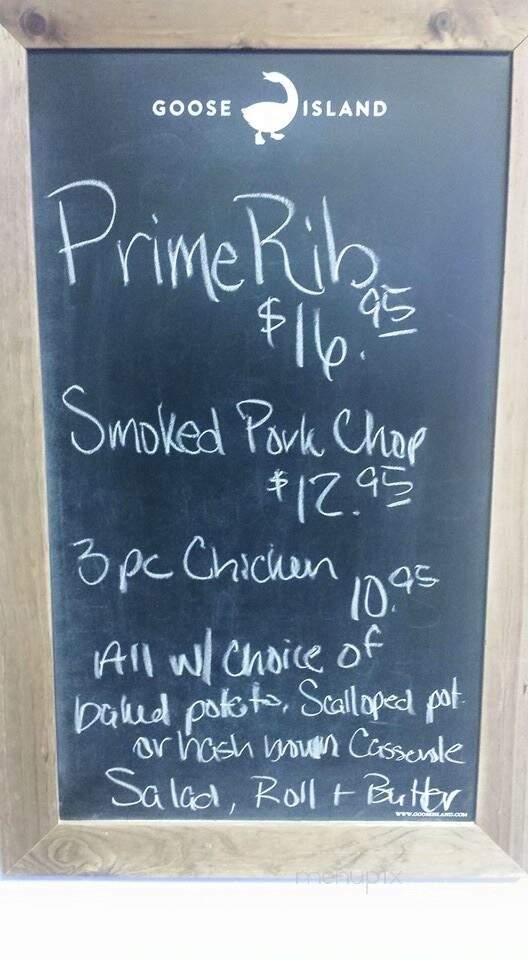 GOOSE ISLAND
Prime Rib
$16.95
Smoked Pork Chop
$12.95
3 pc Chicken 10.95
All w/ Choice of
baked potato, Scalloped pot.
or hash brown Casserole
Salad, Roll + Butter
WWW.GOOSEISLAND.COM
menupix